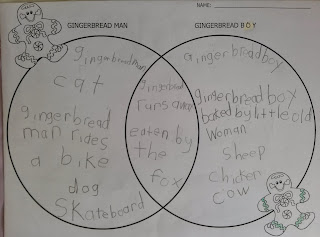 NAME:
GINGERBREAD MAN
GINGERBREAD BOY
gingerbreadman
cat
gingerbread
man rides
a bike
dog
Skateboard
gingerbread
runs away
eaten by
the
fox
gingerbreadboy
gingerbread boy
baked by little old
woman
Sheep
chicken
cow